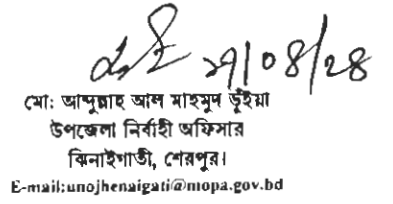 ২৭/০৪/২৪
মো: আব্দুল্লাহ আল মাহমুদ ভূঁইয়া
উপজেলা নির্বাহী অফিসার
ঝিনাইগাতী, শেরপুর।
E-mail:unojhenaigati@mopa.gov.bd